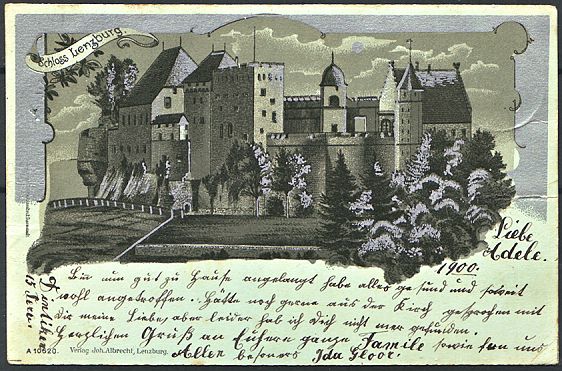 Schloss Lenzburg.
Liebe
Adele.
1900.
Bin nun gut zu Hause angelangt habe alles gesund und soweit
wohl angetroffen. Hätte noch gerne aus der Kirch gesprochen mit
Dir meine Liebe, aber leider hab ich Dich nicht mer gefunden.
Herzlichen Gruß an Euhere ganze Familie sowie von uns
Allen besoners Ida Gloor.
15
A 10620. Verlag Joh. Albrecht, Lenzburg.